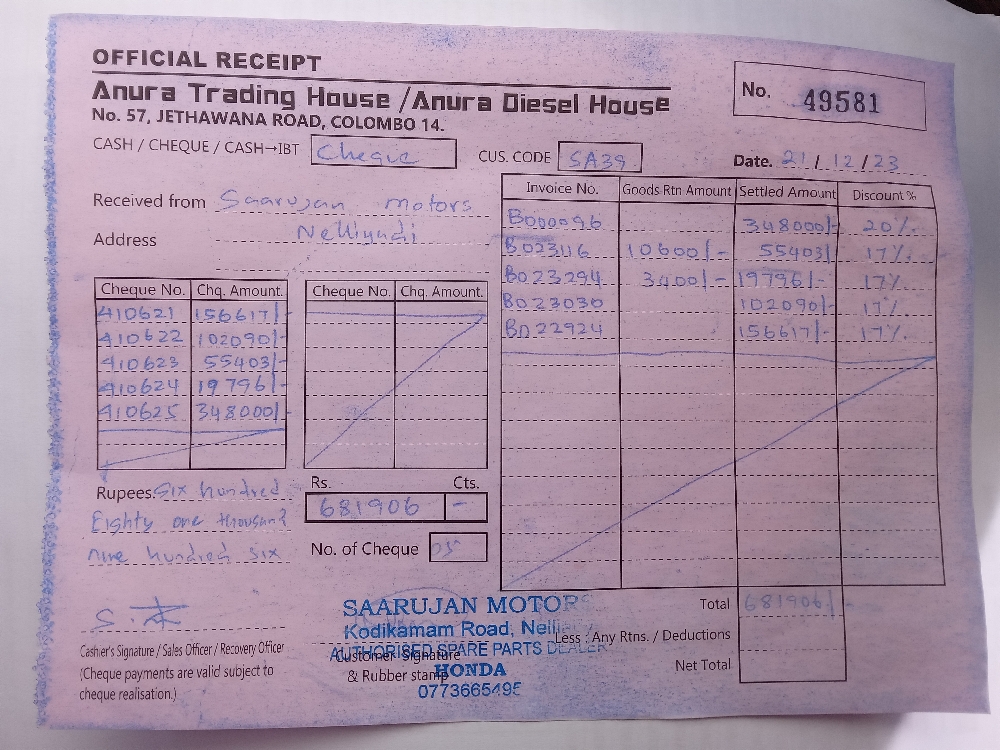 OFFICIAL RECEIPT
Anura Trading House /Anura Diesel House
No. 57, JETHAWANA ROAD, COLOMBO 14.
No. 49581
CASH / CHEQUE / CASH→IBT Cheque
CUS. CODE SA39
Date. 21 / 12 / 23
Received from Saarujan motors
Address Nelliyadi
Cheque No. Chq. Amount.
410621 156617/-
410622 102090/-
410623 55403/-
410624 19796/-
410625 348000/-
Cheque No. Chq. Amount.
Invoice No. Goods Rtn Amount Settled Amount Discount %
B000096 348000/- 20%
B023116 10600/- 55403/- 17%
B023294 3400/- 19796/- 17%
B023030 102090/- 17%
B022924 156617/- 17%
Rupees. Six hundred
Eighty one thousand
nine hundred six
Rs. Cts.
681906 -
No. of Cheque 05
Total 681906/-
Less : Any Rtns. / Deductions
Net Total
Casher's Signature / Sales Officer / Recovery Officer
(Cheque payments are valid subject to
cheque realisation.)
Customer Signature
& Rubber stamp
SAARUJAN MOTORS
Kodikamam Road,
AUTHORISED SPARE PARTS DEALER
HONDA
0773665495